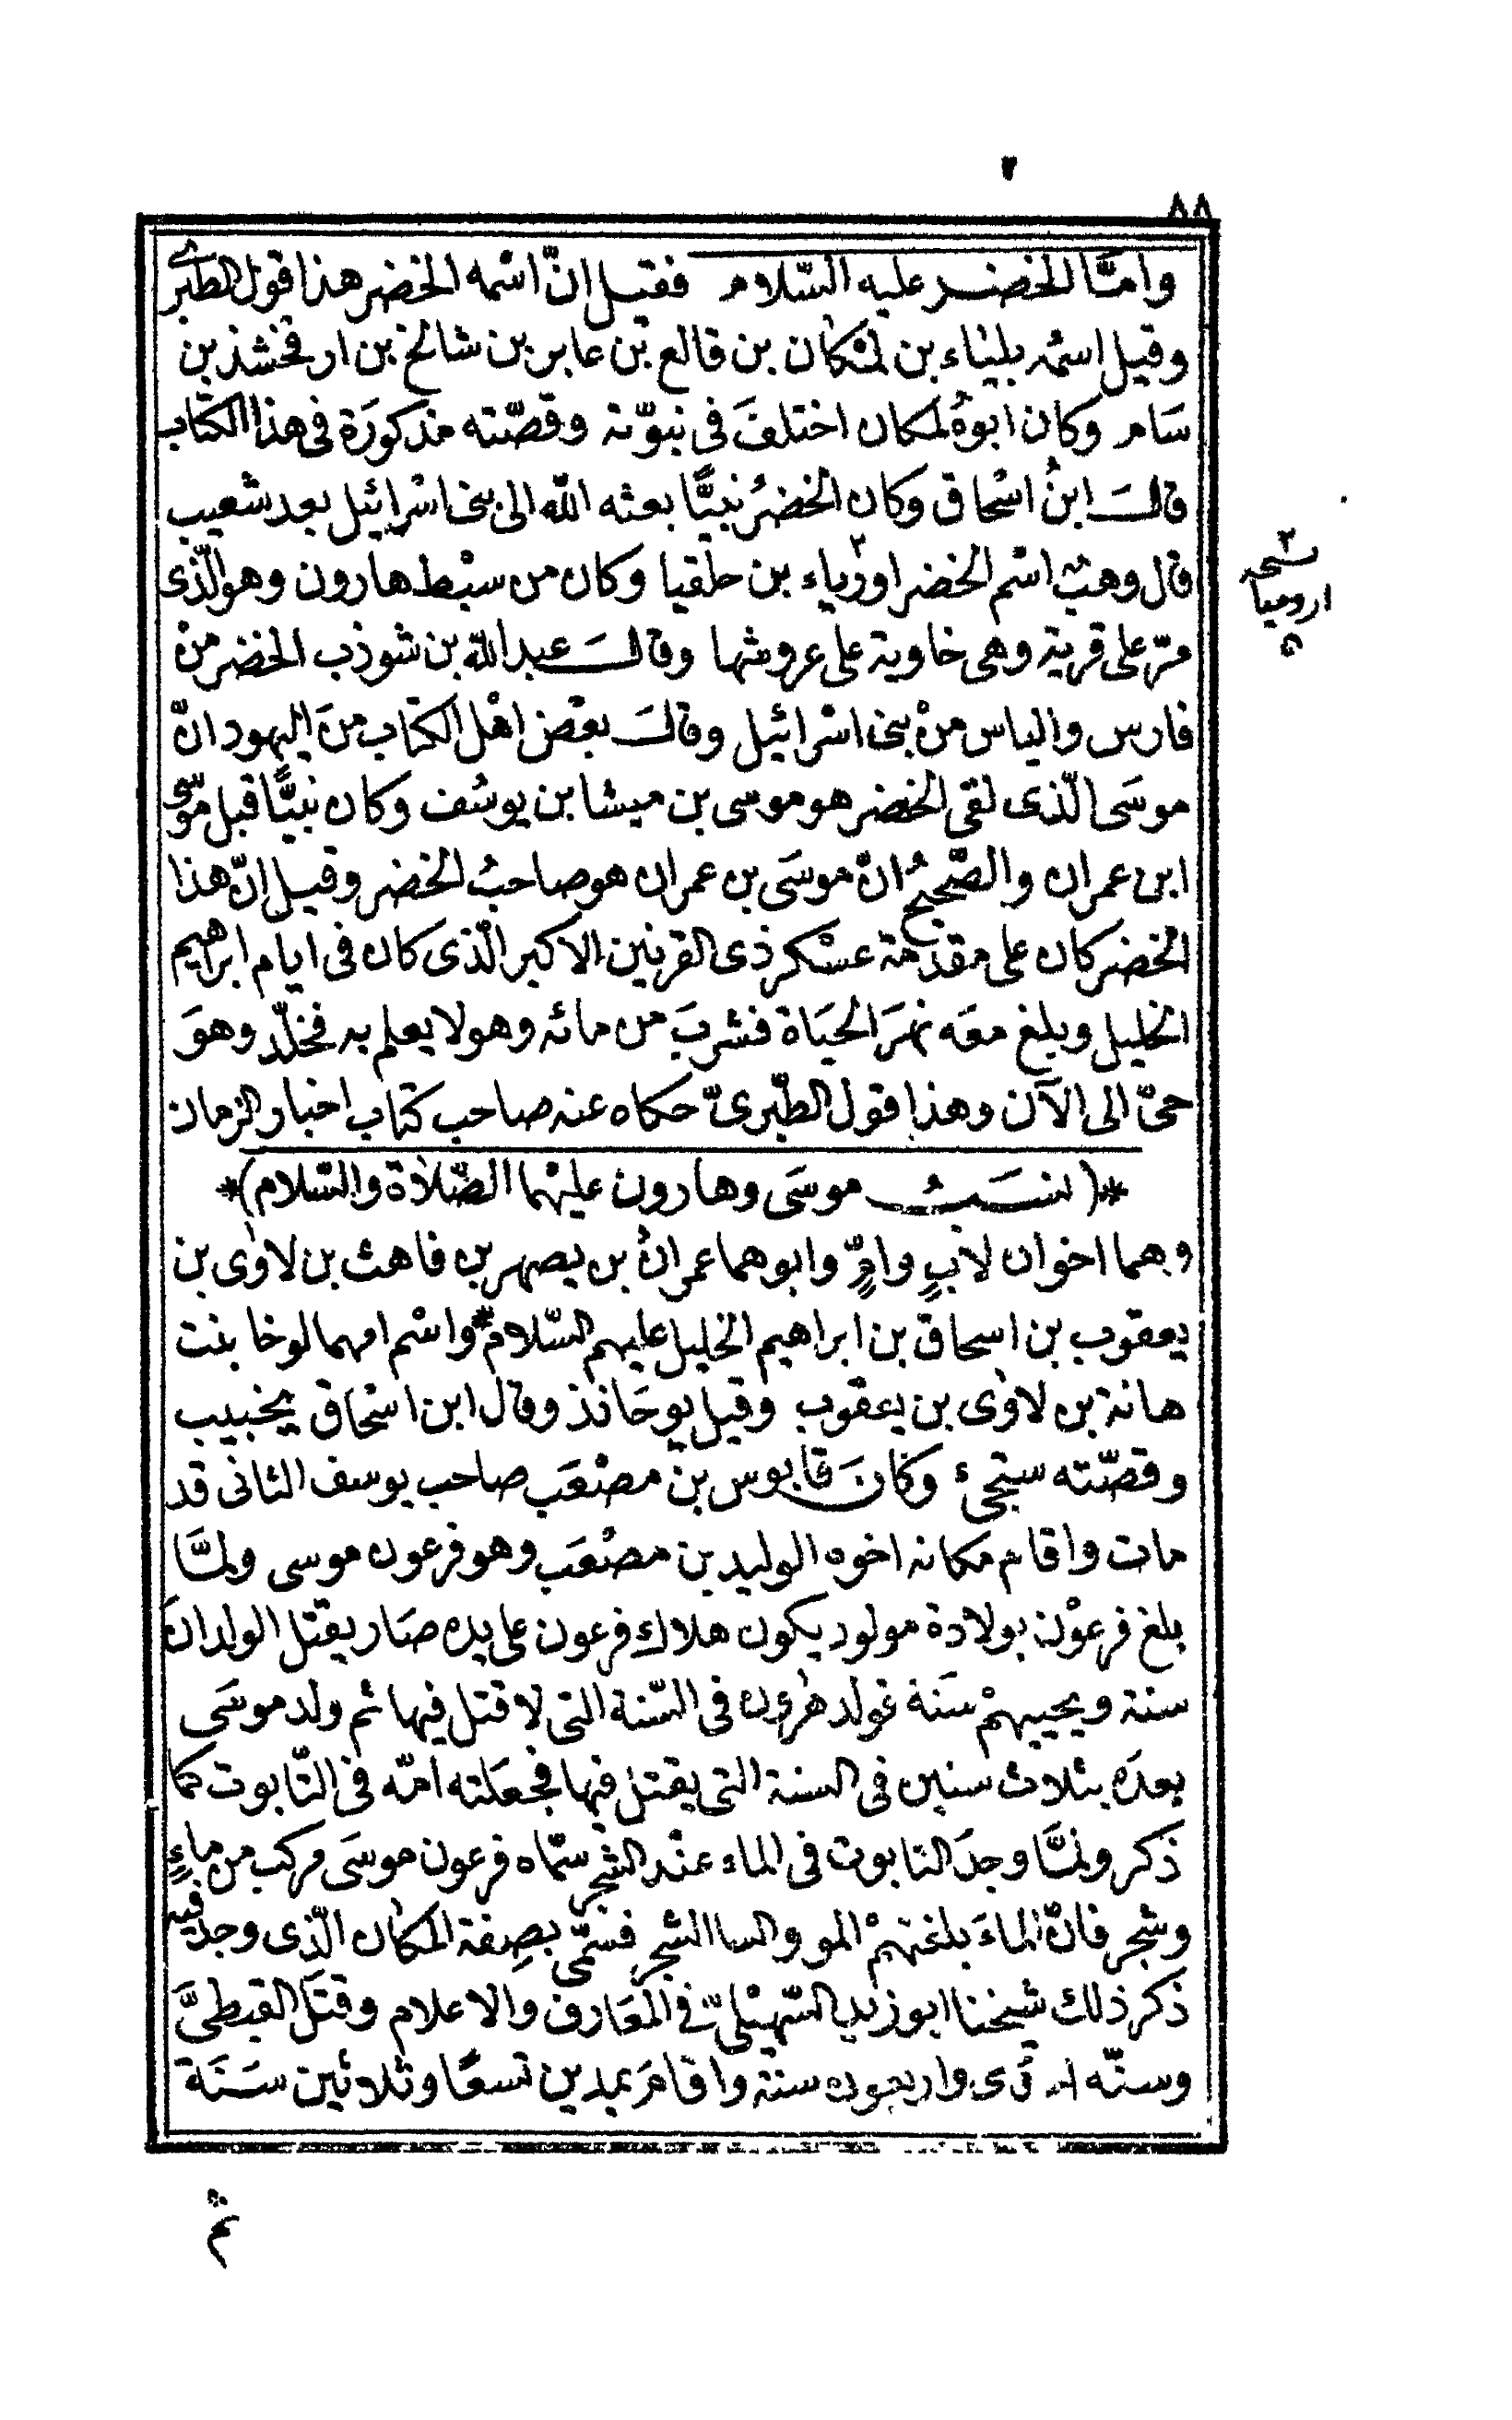 ٨٨
وأمَّا الخضر عليه السّلام فقيل انّ اسْمه الخضر هذا قول الطبَرى
وقيل اسمُه بلياء بن لمْكان بن قالع بن عابر بن شالخ بن ارفخشذ بن
سَام وكان ابوهُ لمكان اختلفَ فى نبوّته وقصّته مذكورَة فى هذا الكتاب
قالَ ابنُ اسْحاق وكان الخضرُ نبيًّا بعثه اللّه الى بنى اسْرائيل بعد شعيب
قال وهبُ اسْم الخضر اوزياء ٢ بن حلقيا وكان من سبْط هارون وهو الّذى
مرّ على قرية وهى خاوية على عروشها وقالَ عبد اللّه بن شوذب الخضر منْ
فارس والياس منْ بنى اسْرائيل وقالَ بعْض اهْل الكتاب منَ اليهود انّ
موسَى الّذى لقى الخضر هو موسى بن ميشا بن يوسُف وكان نبيًّا قبل موسى
ابن عمران والصّحيحُ انّ موسَى بن عمران هو صاحبُ الخضر وقيل انّ هذا
الخضر كان على مقدمة عسْكر ذى القرنين الاكبر الّذى كان فى ايام ابراهيم
الخليل وبلغ معَه نهرَ الحيَاة فشربَ من مائه وهو لا يعلم به فخلّد وهوَ
حىّ الى الآن وهذا قول الطّبرىّ حكاه عنه صاحب كتاب اخبار الزمان
*(نسَبُ موسَى وهارون عليهْما الصّلاة والسّلام)*
وهما اخوان لابٍ وامٍّ وابوهما عمرانُ بن يصهر بن قاهث بن لاوٰى بن
يعقوب بن اسحاق بن ابراهيم الخليل عليهم السّلام* واسْم امهما لوخا بنت
هانة بن لاوٰى بن يعقوب وقيل يوحَانذ وقال ابن اسْحاق يخبيب
وقصّته ستجئ وكانَ قابوس بن مصْعَب صاحب يوسف الثانى قد
مات واقام مكانه اخوه الوليد بن مصْعَب وهو فرعون موسى ولمَّا
بلغ فرعوْن بولادة مولود يكون هلاك فرعون على يده صَار يقتل الولدانَ
سنة ويحييهمْ سَنة فولد هٰرون فى السّنة التى لا قتل فيها ثم ولد موسَى
بعدَه بثلاث سنين فى السنة التى يقتل فيها فجعَلته امّه فى التّابوت كما
ذكر ولمَّا وجدَ التابوت فى الماء عنْد الشجر سمّاه فرعون موسَى مركب من ماءٍ
وشجر فانّ الماءَ بلغتهمْ المو والسا الشجر فسمّى بصِفة المكان الّذِى وجد فيه
ذكر ذلك شيخنا ابو زيد السّهيْلىّ فى المعَارف والاعلام وقتَل القبطىَّ
وسنّه واربعون سنة واقامَ بمدين تسعًا وثلاثين سَنَة
نسخه ٢
ارومياً
ثم